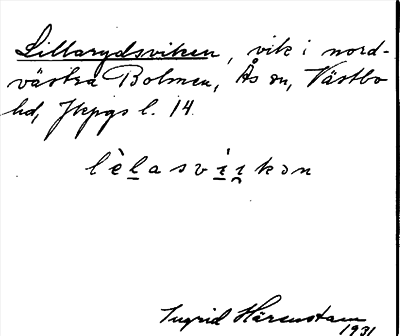 Lillarydsviken, vik i nord-
västra Bolmen, Ås sn, Västbo
hd, Jkpgs l. 14.
lèlasvíıkən
Ingrid Härenstam
1931